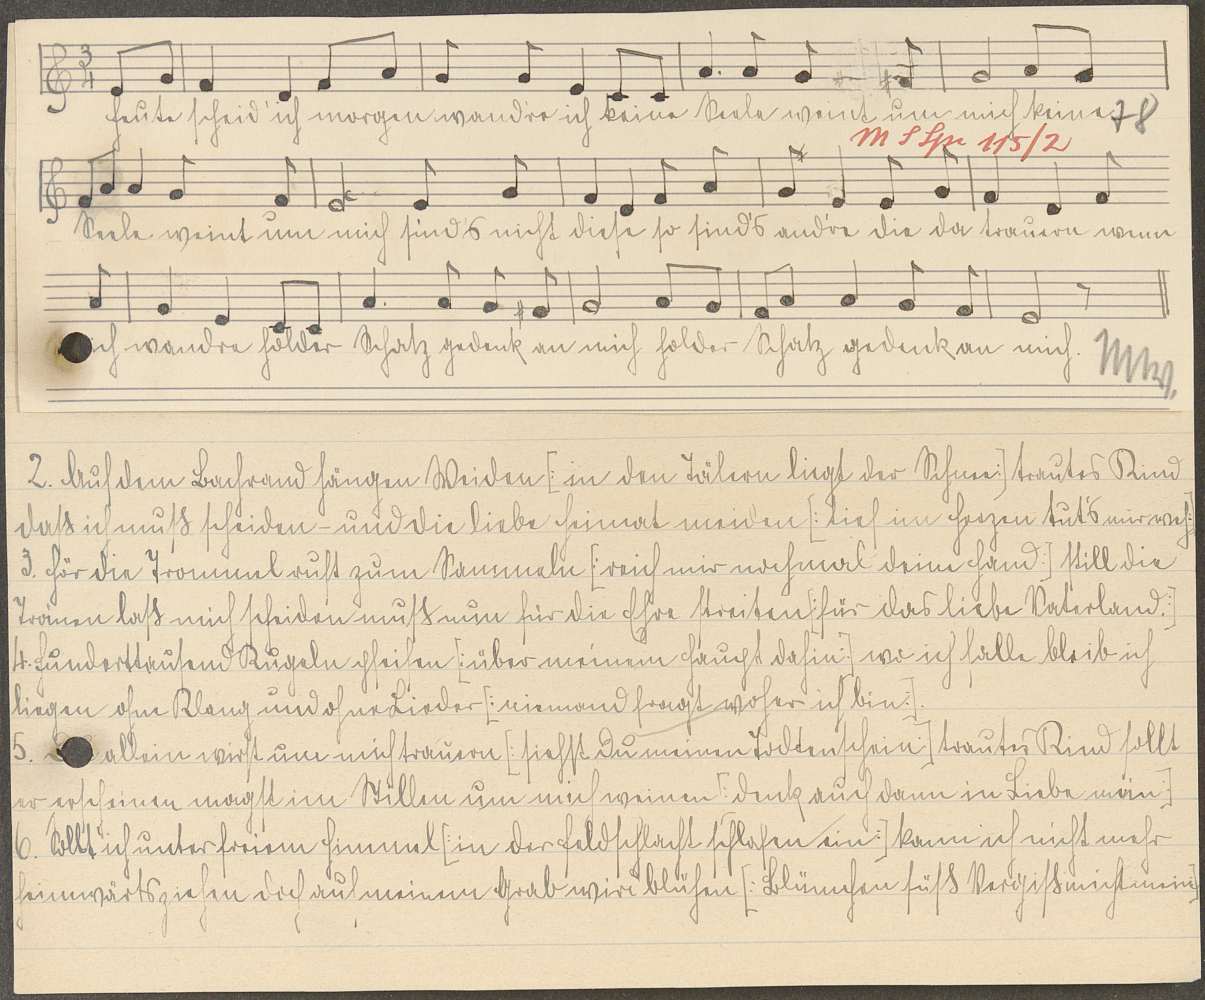 3/4
Heute scheid' ich morgen wandre ich keine Seele weint um mich keine 78
M S Spr 115/2
Seele weint um mich sind's nicht diese so sind's and're die da trauern wenn
ich wandre holder Schatz gedenk an mich holder Schatz gedenk an mich.
2. Auf dem Bachrand hängen Weiden [: in den Tälern liegt der Schnee :] trautes Kind
daß ich muß scheiden - und die liebe Heimat meiden [: tief im Herzen tut's mir weh :]
3. Hör die Trommel ruft zum Sammeln [: reich mir nochmal deine Hand :] still die
Tränen laß mich scheiden muß nun für die Ehre streiten [: für das liebe Vaterland. :]
4. Hunderttausend Kugeln pfeifen [: über meinem Haupt dahin :] wo ich falle bleib ich
liegen ohne Klang und ohne Lieder [: niemand fragt woher ich bin :].
5. allein wirst um mich trauern [: siehst Du meinen Todtenschein :] trautes Kind sollt
er erscheinen magst im Stillen um mich weinen [: denk auch dann in Liebe mein :]
6. Sollt ich unter freiem Himmel [: in der Feldschlacht schlafen ein :] kann ich nicht mehr
heimwärts ziehen doch auf meinem Grab wird blühen [: Blümchen süß Vergißmichtmein :]